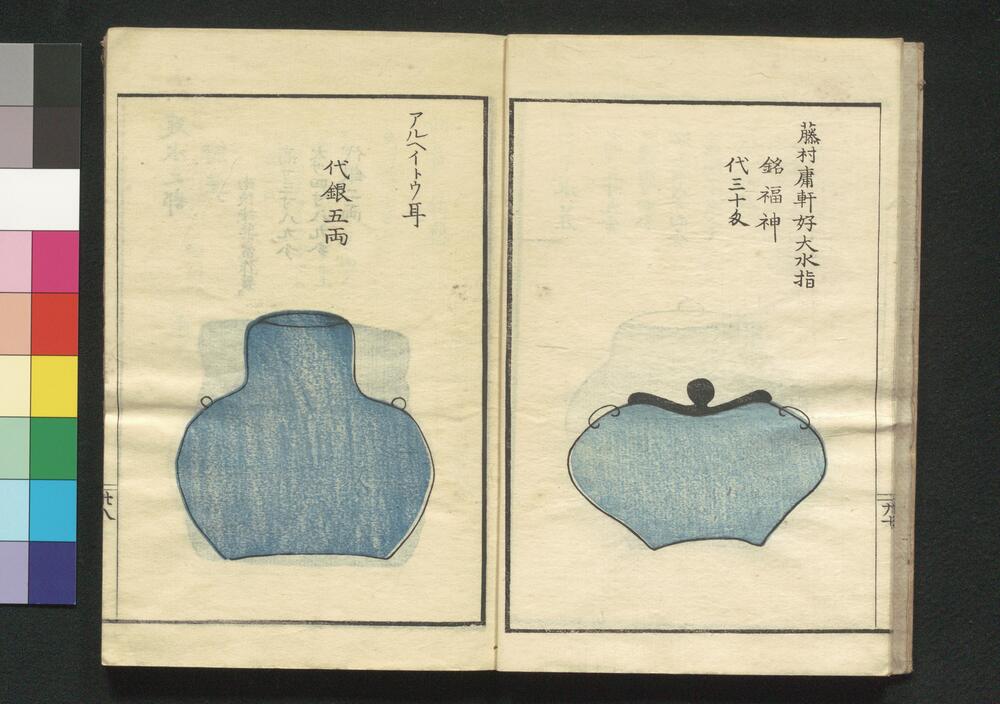 藤村庸軒好大水指
銘福神
代三十匁
アルヘイトウ耳
代銀五両
廿八